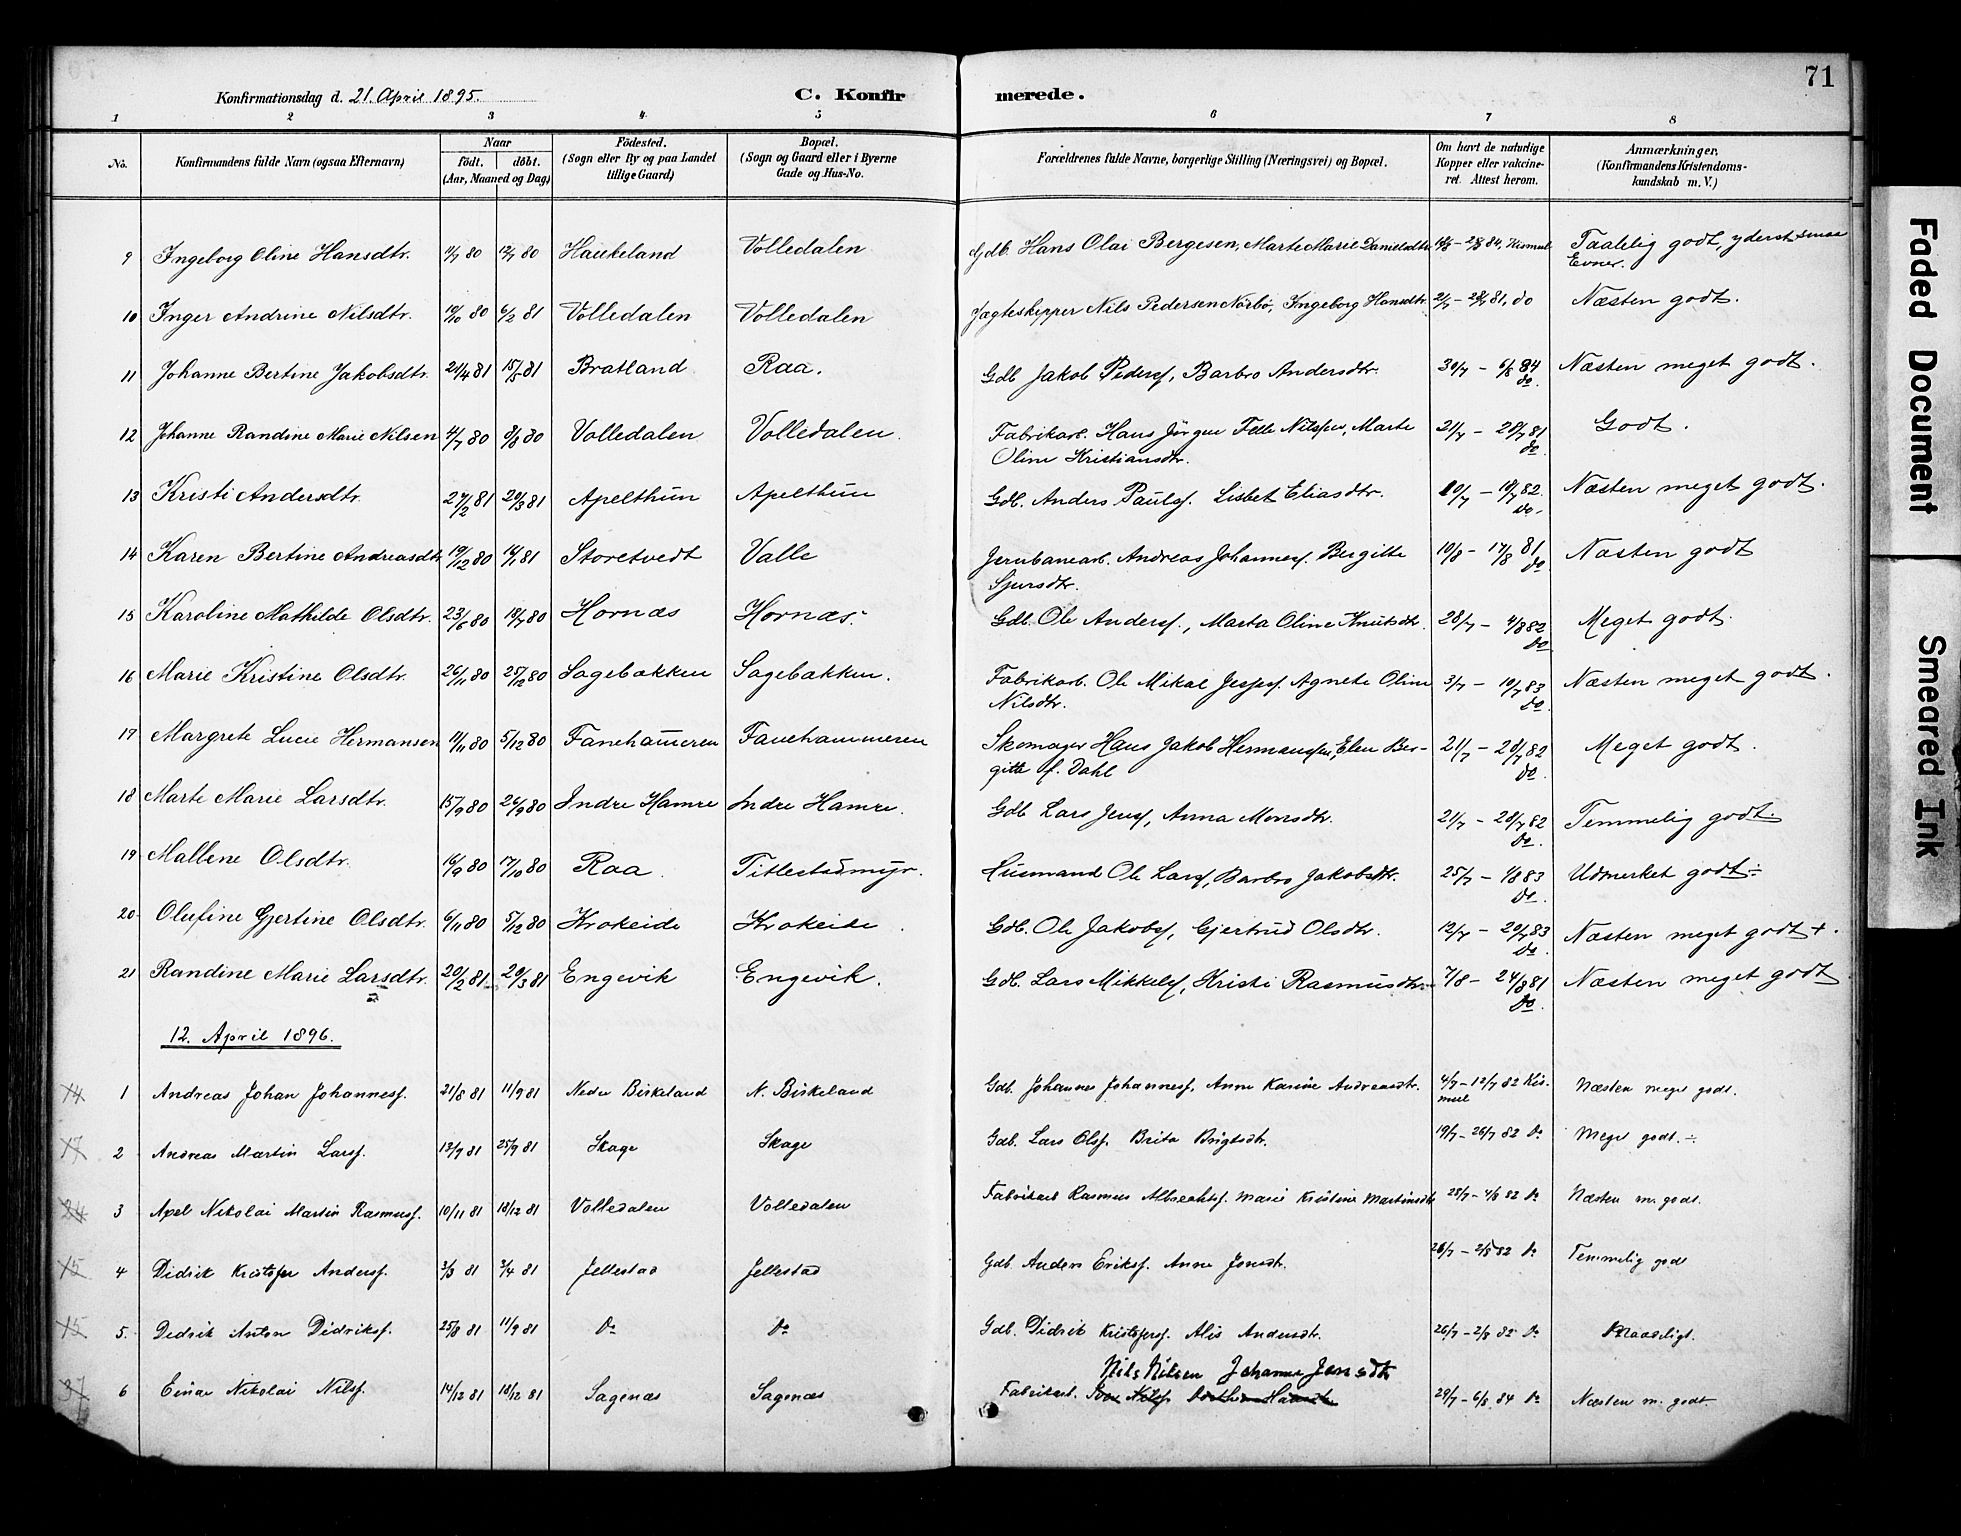 71
Konfirmationsdag d. 21. April 1895. C. Konfir merede.
1 2 3 4 5 6 7 8
No. Konfirmandens fulde Navn (ogsaa Efternavn) Naar födt. döbt. (Aar, Maaned og Dag) Födested. (Sogn eller By og paa Landet tillige Gaard) Bopæl. (Sogn og Gaard eller i Byerne Gade og Hus-No. Forældrenes fulde Navne, borgerlige Stilling (Næringsvei) og Bopæl. Om havt de naturlige Kopper eller vakcineret. Attest herom. Anmærkninger, (Konfirmandens Kristendomskundskab m. V.)
9 Ingeborg Oline Hansdtr. 80 80 Haukeland Volledalen Gdb. Hans Olai Bergesen, Marte Marie Danielsdtr 84, Kismul Taalelig godt, yderst smaa Evner.
10 Inger Andrine Nilsdtr. 80 6/2 81 Volledalen Volledalen Jægteskipper Nils Pedersen Norbø, Ingeborg Hansdtr. 81, do Næsten godt.
11 Johanne Bertine Jakobsdtr. 21/4 81 15/5 81 Bratland Raa. Gdb Jakob Peders., Barbro Andersdtr. 30/7 – 6/8 84 do Næsten meget godt.
12 Johanne Randine Marie Nilsen 4/7 80 8/8 80 Volledalen Volledalen. Fabrikarb. Hans Jörgen Nilssen, Marte Oline Kristiansdtr. 21/7 – 28/7 81 do. Godt.
13 Kristi Andersdtr. 27/2 81 20/3 81 Apelthun Apelthun Gdb. Anders Pauls. Lisbet Eliasdtr. 10/7 – 18/7 82. do. Næsten meget godt.
14 Karen Bertine Andreasdtr 19/12 80 16/1 81 Storetvedt Valle Jernbanearb. Andreas Johannes. Bergitte Sjursdtr. 10/8 – 17/8 81 do Næsten godt
15 Karoline Mathilde Olsdtr. 23/6 80 18/7 80 Hornæs Hornæs. Gdb. Ole Anders., Marta Oline Knutsdtr. 28/7 – 4/8 82 do Meget godt.
16 Marie Kristine Olsdtr. 26/11 80 25/12 80 Sagebakken Sagebakken. Fabrikarb. Ole Mikal Jesps. Agnete Oline Nilsdtr. 3/7 – 10/7 83 do. Næsten meget godt.
17 Margrete Lucie Hermansen 11/11 80 5/12 80 Fanehameren Fanehammeren Skomager Hans Jakob Hermansen, Elen Bergitte f. Dahl 21/7 – 28/7 82 do. Meget godt.
18 Marte Marie Larsdtr. 15/9 80 26/9 80 Indre Hamre Indre Hamre. Gdb Lars Jens., Anna Monsdtr. 21/7 – 28/7 82 do. Temmelig godt.
19 Mallene Olsdtr. 16/9 80 17/10 80 Raa. Titlestadmyr. Husmand Ole Lars., Barbro Jakobsdtr. 25/7 – 1/8 83 do. Udmerket godt ÷
20 Olufine Gjertine Olsdtr. 6/11 80 5/12 80 Krokeide Krokeide. Gdb. Ole Jakobs., Gjertrud Olsdtr. 12/7 – 20/7 83 do. Næsten meget godt +.
21 Randine Marie Larsdtr. 20/2 81 20/3 81 Engevik Engevik. Gdb. Lars Mikkels., Kristi Rasmusdtr. 7/8 – 24/8 81 do. Næsten meget godt
12. April 1896.
14 1 Andreas Johan Johannes. 21/8 81 11/9 81 Nedre Birkeland N. Birkeland Gdb. Johannes Johannes. Anne Karine Andreasdtr. 4/7 – 12/7 82 Kismul Næsten meget godt.
17 2 Andreas Martin Lars. 13/9 81 25/9 81 Skage Skage Gdb. Lars Ols. Brita Brigtsdtr. 19/7 – 26/7 82 do Meget godt. ÷
24 3 Axel Nikolai Martin Rasmus. 10/11 81 18/12 81 Volledalen Volledalen Fabrikarb Rasmus Albrechts. Marie Kristine Martinsdtr 28/7 – 4/8 82 do Næsten m. godt.
15 4 Didrik Kristofer Anders. 3/3 81 3/4 81 Jellestad Jellestad Gdb. Anders Eriks. Anne Jonsdtr. 26/7 – 2/8 82 do Temmelig godt
15 5. Didrik Anton Didriks. 25/8 81 11/9 81 do do Gdb. Didrik Kristofers. Alis Andersdtr. 26/7 – 2/8 82 do Maadeligt.
Nils Nilsen Johanne Jensdtr
37 6 Einar Nikolai Nils. 14/12 81 18/12 81 Sagenæs Sagenæs Fabrikarb. 29/7 – 6/8 84 do Næsten m. godt.
Faded Document
Smeared Ink